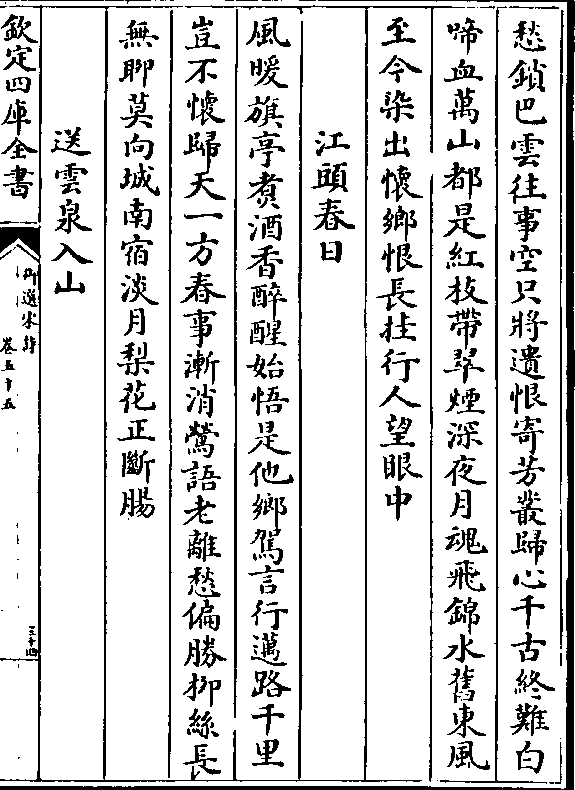 愁鎖巴雲往事空只將遺恨寄芳叢歸心千古終難白
啼血萬山都是紅枝帶翠煙深夜月魂飛錦水舊東風
至今染出懷鄉恨長挂行人望眼中
江頭春日
風暖旗亭煑酒香醉醒始悟是他鄉駕言行邁路千里
豈不懷歸天一方春事漸消鶯語老離愁偏勝栁絲長
無聊莫向城南宿淡月梨花正斷腸
送雲泉入山
欽定四庫全書
御選宋詩
卷五十五
三十四